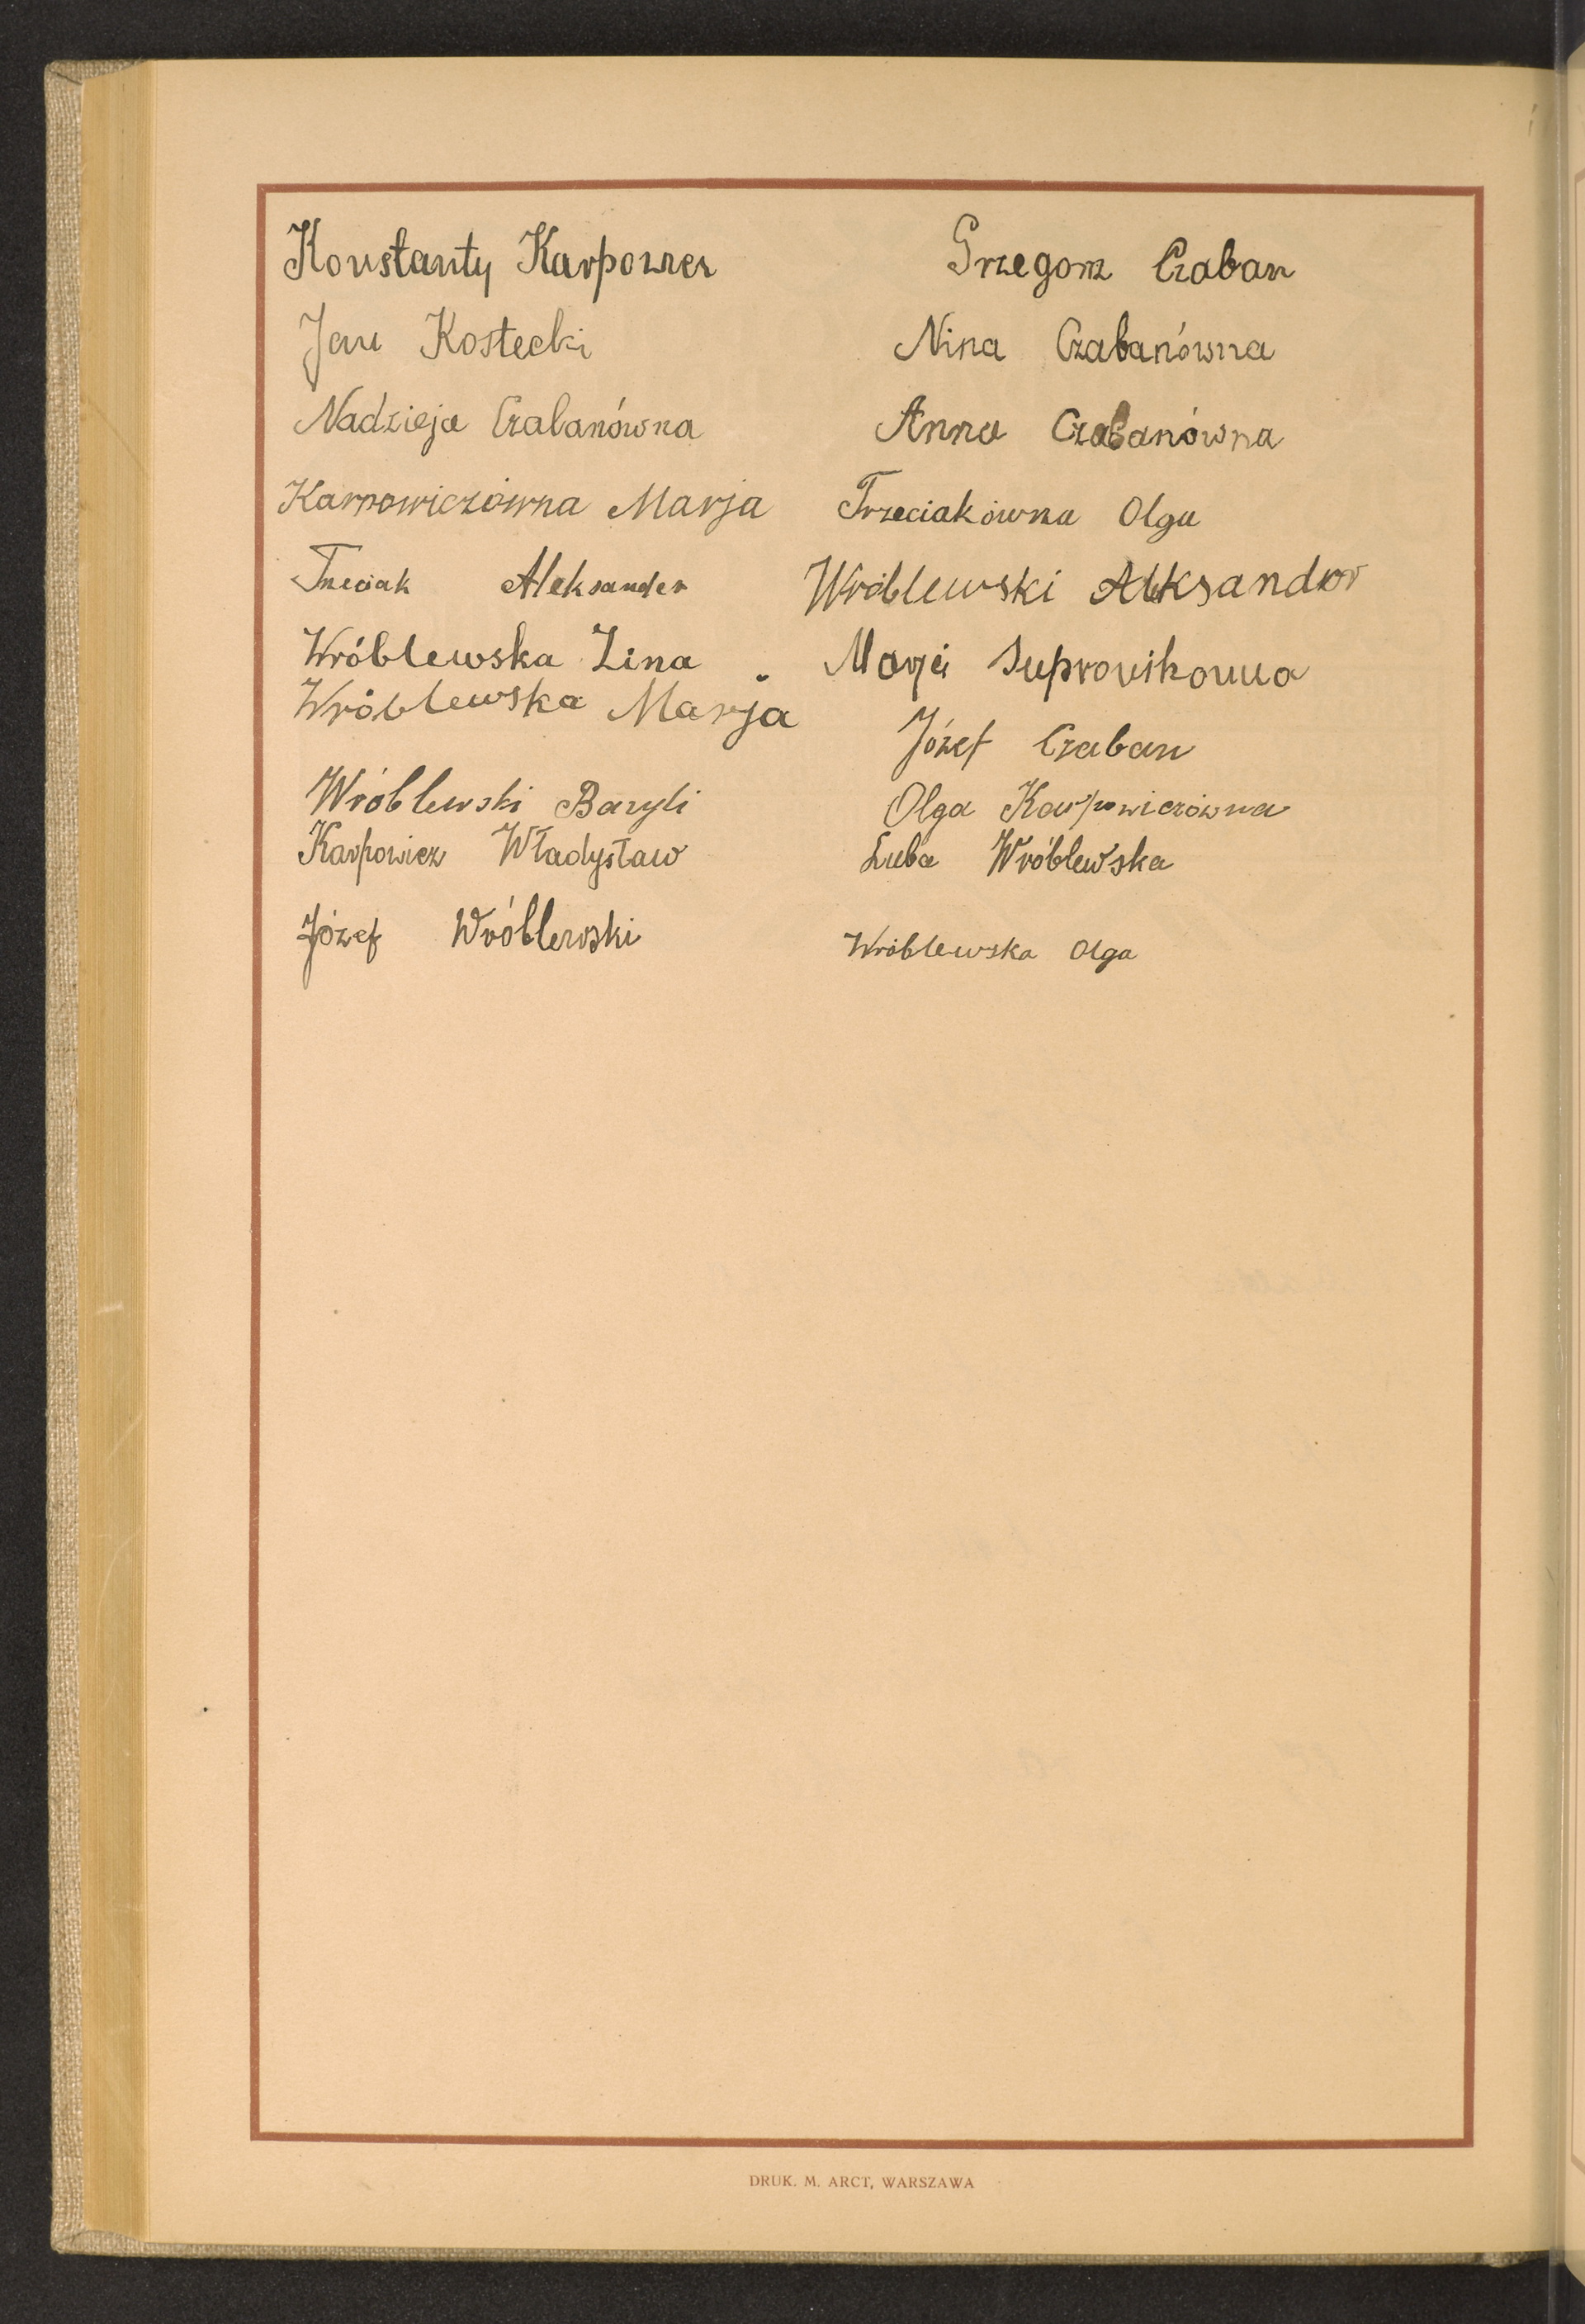 Konstanty Karpowicz
Grzegorz Czaban
Jan Kostecki
Nina Czabanówna
Nadzieja Czabanówna
Anna Czabanówna
Karpowiczówna Marja
Trzeciakówna Olga
Trzeciak Aleksander
Wróblewski Aleksander
Wróblewska Zina
Marja
Wróblewska Marja
Józef Czaban
Wróblewski Bazyli
Olga Karpowiczówna
Karpowicz Władysław
Luba Wróblewska
Józef Wróblewski
Wróblewska Olga
DRUK. M. ARCT, WARSZAWA